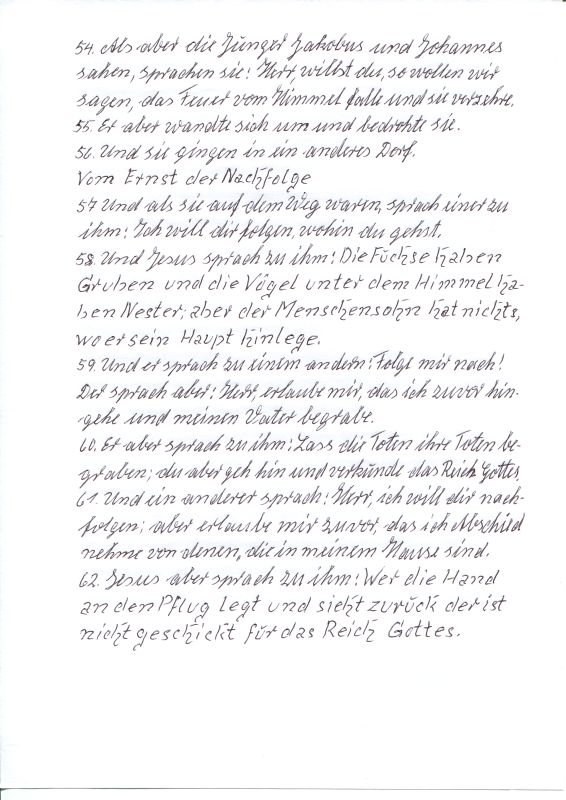 54. Als aber die Jünger Jakobus und Johannes
sahen, sprachen sie: Herr, willst du, so wollen wir
sagen, das Feuer vom Himmel falle und sie verzehre.
55. Er aber wandte sich um und bedrohte sie.
56. Und sie gingen in ein anderes Dorf.
Vom Ernst der Nachfolge
57 Und als sie auf dem Weg waren, sprach einer zu
ihm: Ich will dir folgen, wohin du gehst.
58. Und Jesus sprach zu ihm: Die Füchse haben
Gruben und die Vögel unter dem Himmel ha-
ben Nester; aber der Menschensohn hat nichts,
wo er sein Haupt hinlege.
59. Und er sprach zu einem andern: Folge mir nach!
Der sprach aber: Herr, erlaube mir, das ich zuvor hin-
gehe und meinen Vater begrabe.
60. Er aber sprach zu ihm: Lass die Toten ihre Toten be-
graben; du aber geh hin und verkünde das Reich Gottes.
61. Und ein anderer sprach: Herr, ich will dir nach-
folgen; aber erlaube mir zuvor, das ich Abschied
nehme von denen, die in meinem Hause sind.
62. Jesus aber sprach zu ihm: Wer die Hand
an den Pflug legt und sieht zurück der ist
nicht geschickt für das Reich Gottes.